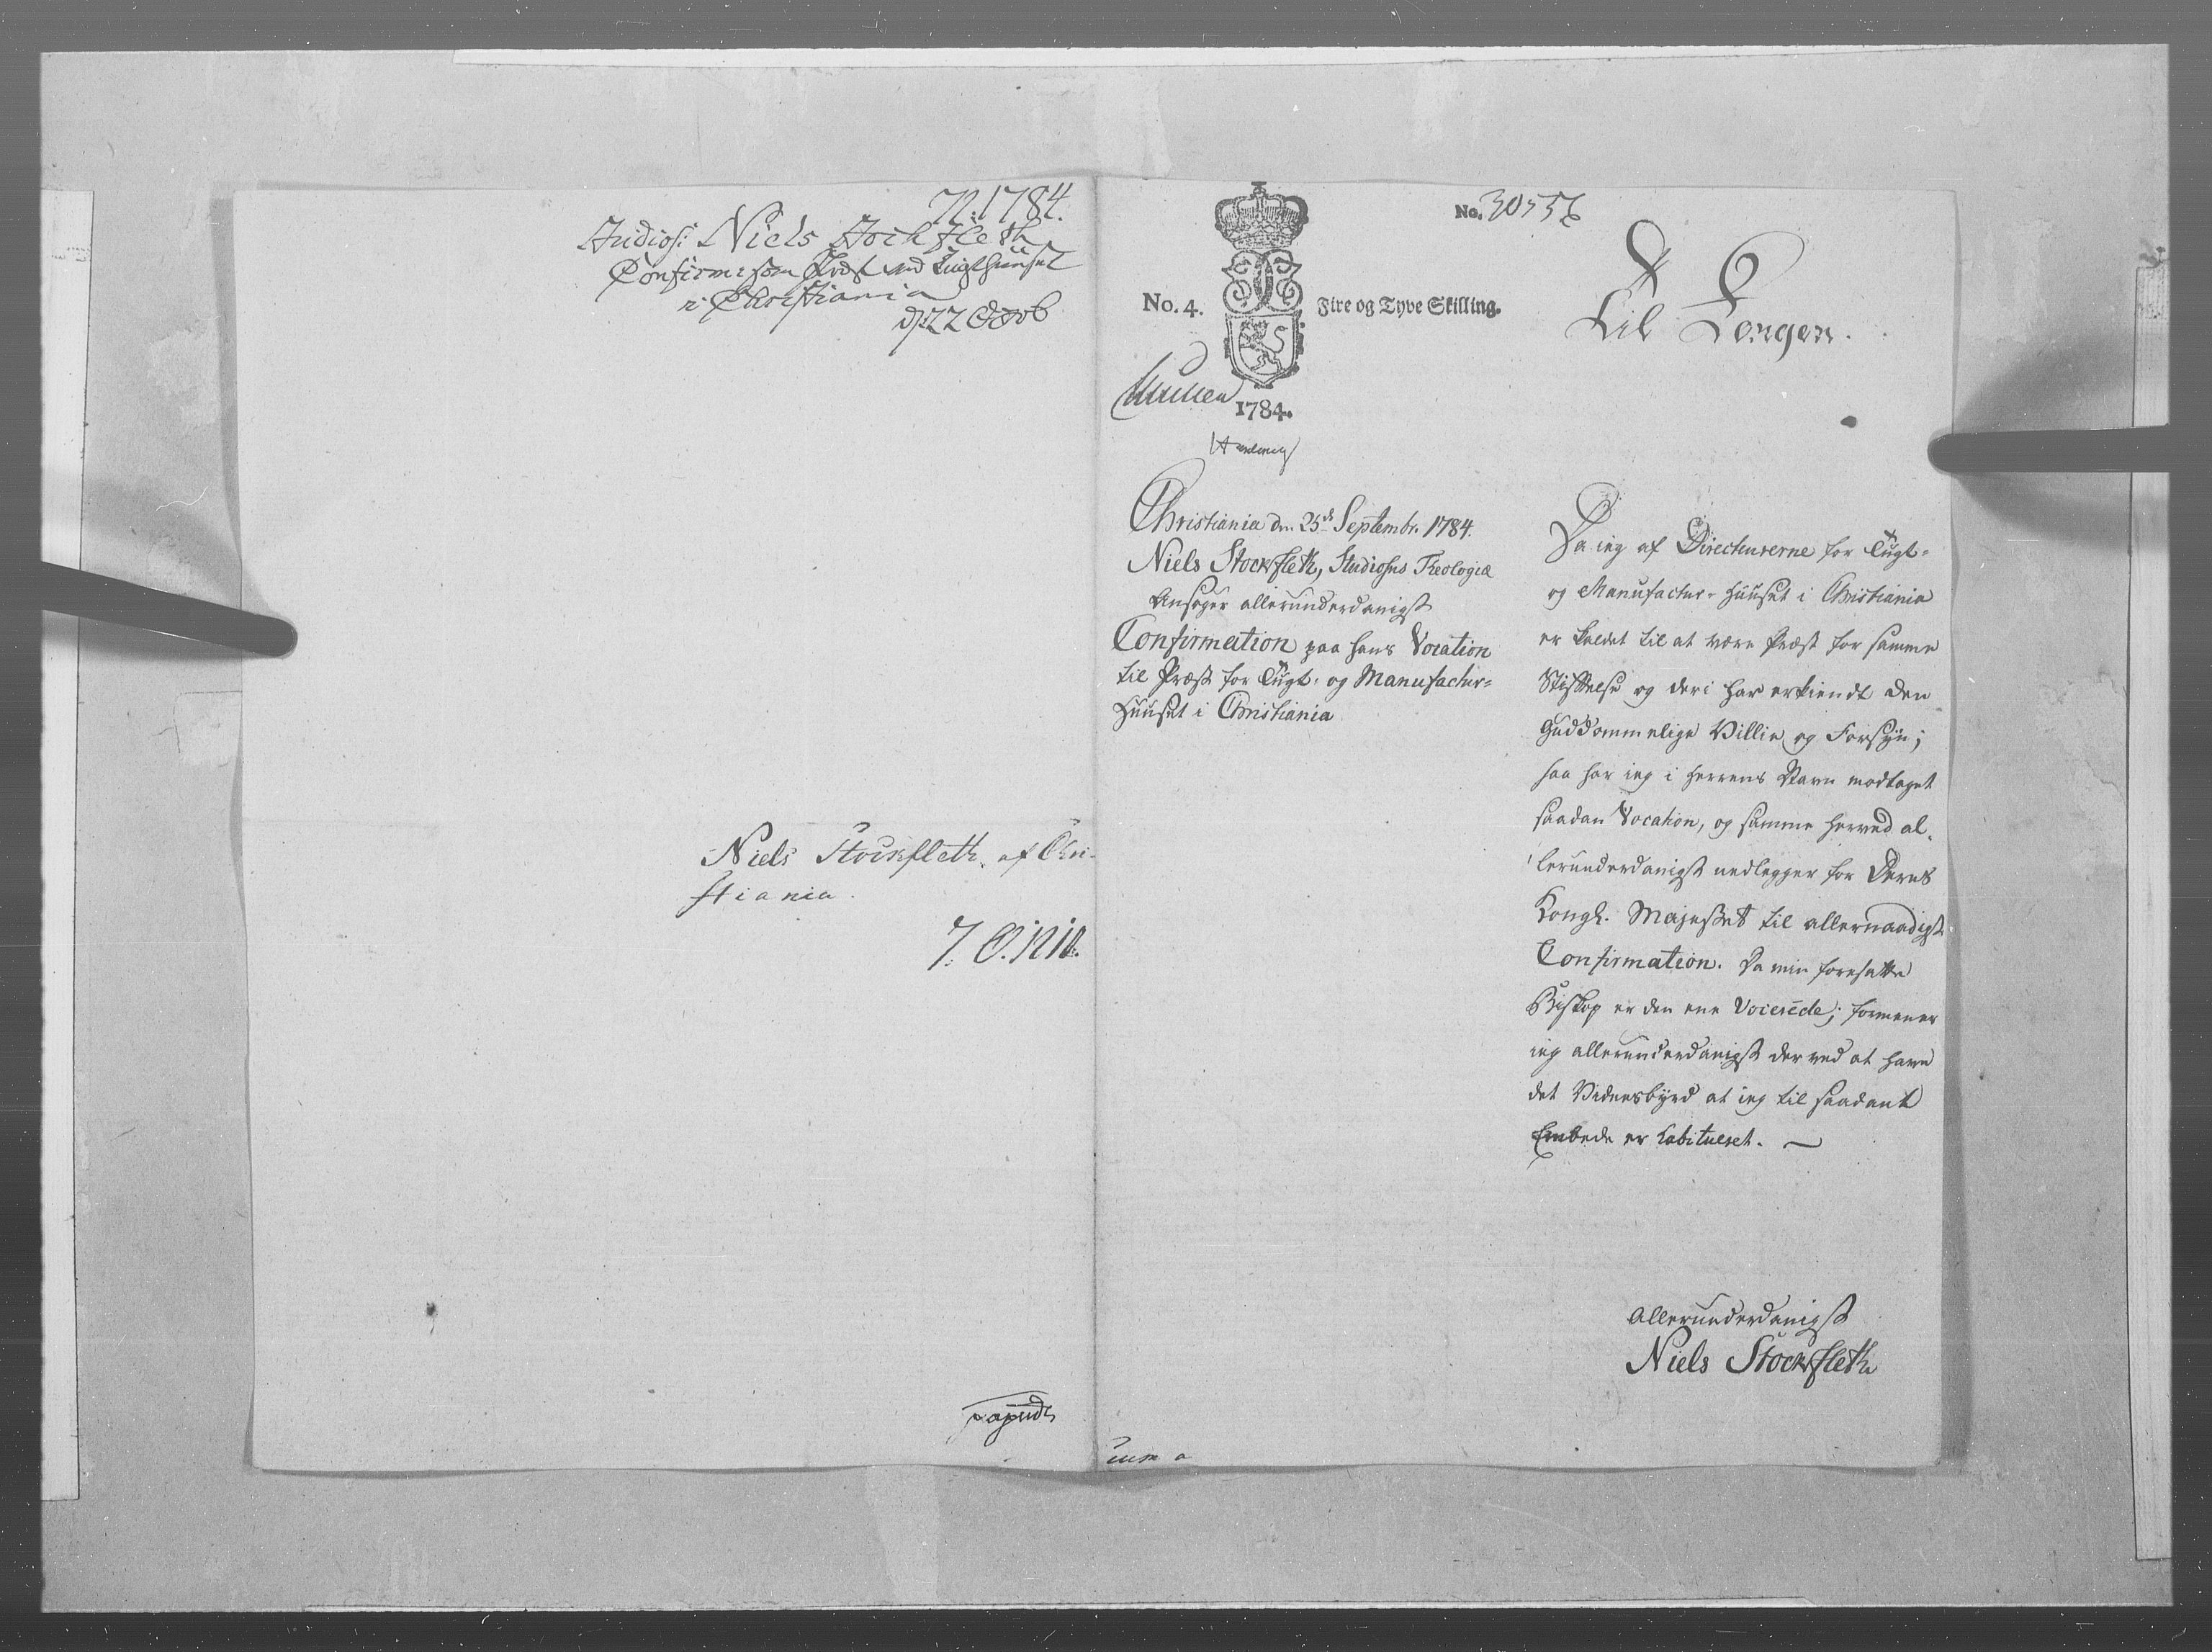 N. 1784.
Studios: Niels Stockfleth
Confirm: som Præst ved Tugthuuset
i Christiania
d 22 Octob
Niels Stockfleth af Chri-
stiania.
No. 4.
Fire og Tyve Skilling.
1784.
No.
Til Kongen.
Christiania den 25de Septembr. 1784.
Niels Stockfleth, Studiosus Theologiæ
Ansøger allerunderdanigst
Confirmation paa hans Vocation
til Præst for Tugt- og Manufactur-
Huuset i Christiania
Da ieg af Directeurerne for Tugt-
og Manufactur-Huuset i Christiania
er kaldet til at være Præst for samme
Stiftelse og deri har erkiendt den
Guddommelige Villie og Forsyn;
saa har ieg i Herrens Navn modtaget
saadan Vocation, og samme herved al-
lerunderdanigst nedlegger for Deres
Kongl. Majestet til allernaadigst
Confirmation. Da min foresatte
Biskop er den ene Vocerede; formener
ieg allerunderdanigst derved at have
det Vidnesbyrd at ieg til saadant
Embede er habitueret. —
Allerunderdanigst
Niels Stockfleth